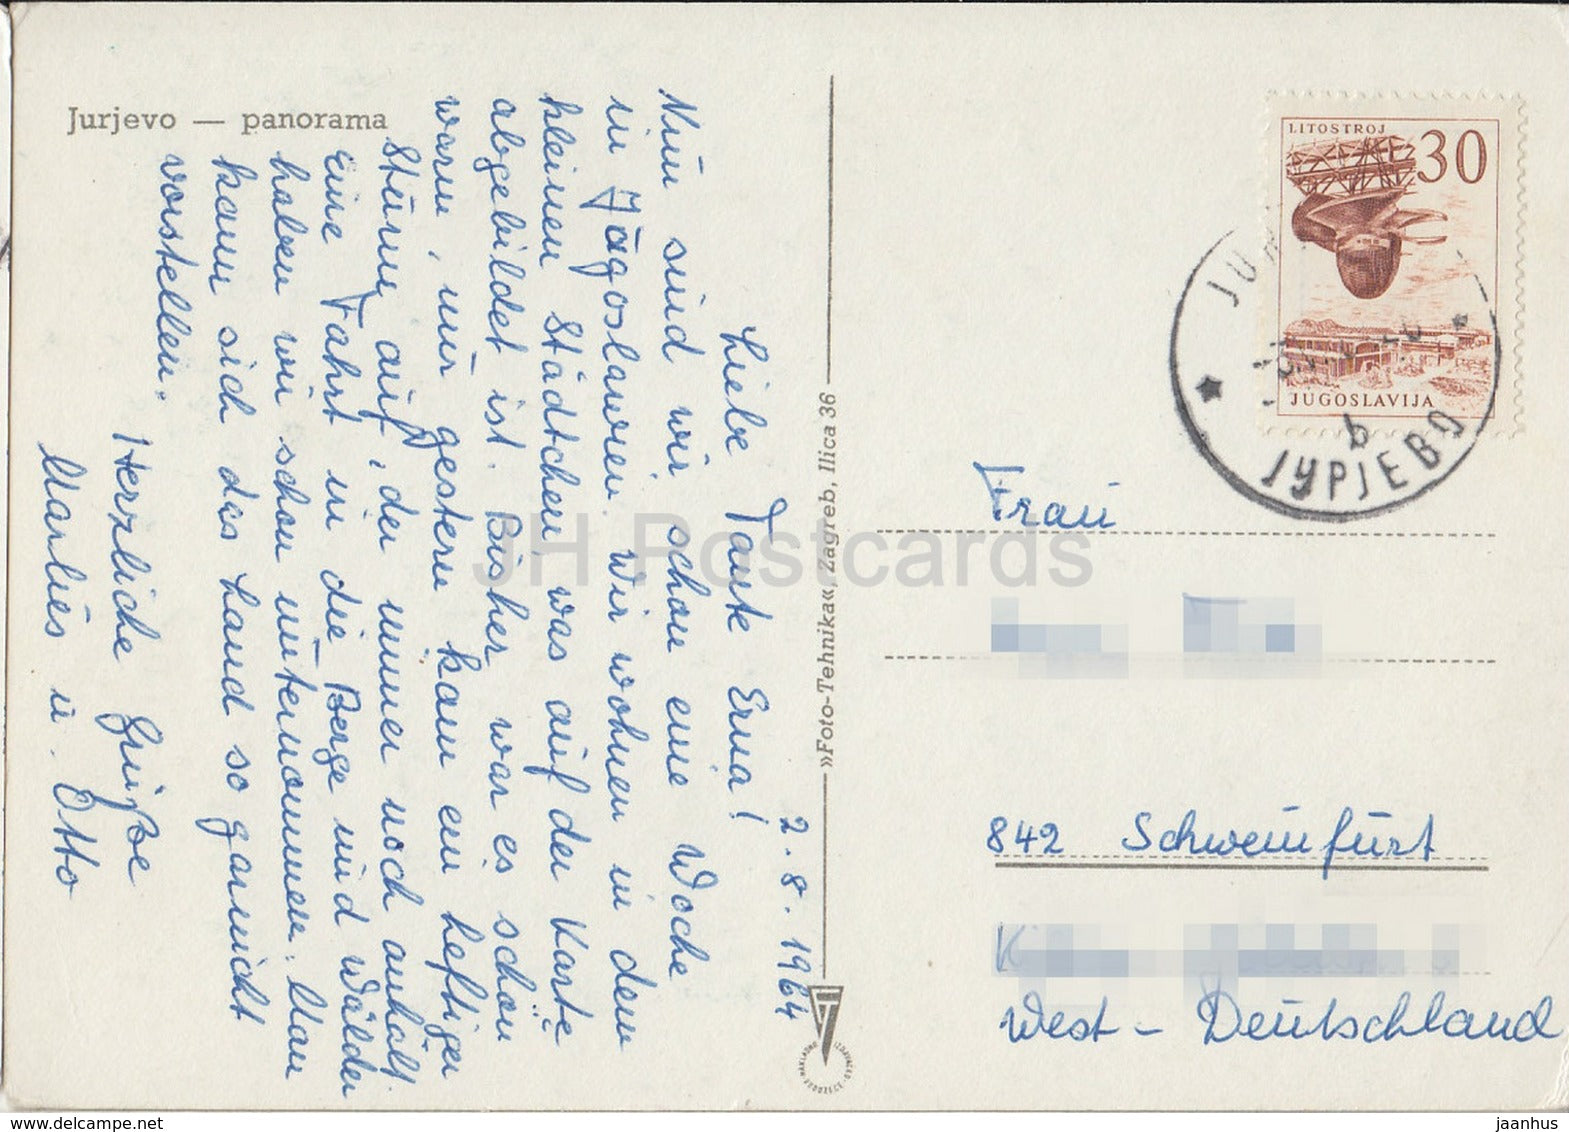 Jurjevo — panorama
2.8.1964
Liebe Tante Erna!
Nun sind wir schon eine Woche
in Jugoslawien. Wir wohnen in dem
kleinen Städtchen, was auf der Karte
abgebildet ist. Bisher war es schön
warm, nur gestern kam ein heftiger
Sturm auf, der immer noch anhält.
Eine Fahrt in die Berge und Wälder
haben wir schon unternommen. Man
kann sich das Land so garnicht
vorstellen.
Herzliche Grüße
Marlies u. Otto
»Foto-Tehnika«, Zagreb, Ilica 36
LITOSTROJ
30
JUGOSLAVIJA
b
ЈУРЈЕВО
Frau
842 Schweinfurt
West-Deutschland
JH Postcards
www.delcampe.net
jaanhus